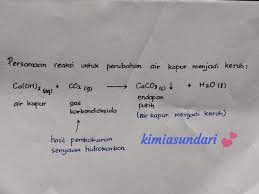 Persamaan reaksi untuk perubahan air kapur menjadi keruh:
Ca(OH)₂ (aq) + CO₂ (g) → CaCO₃ (s) ↓ + H₂O (l)
air kapur gas karbondioksida endapan putih
(air kapur menjadi keruh)
hasil pembakaran
senyawa hidrokarbon
kimiasundari 💕